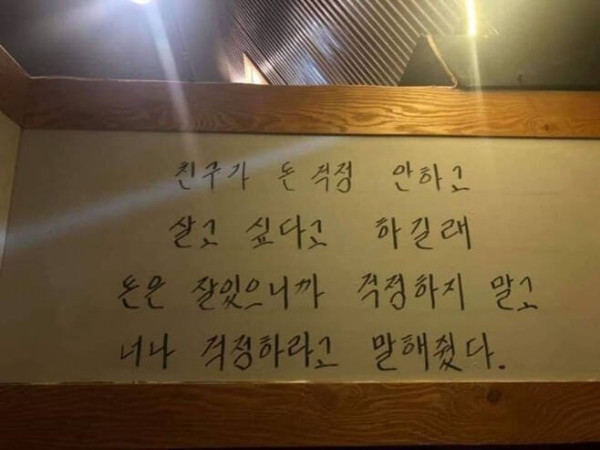 친구가 돈 걱정 안하고
살고 싶다고 하길래
돈은 잘있으니까 걱정하지 말고
너나 걱정하라고 말해줬다.